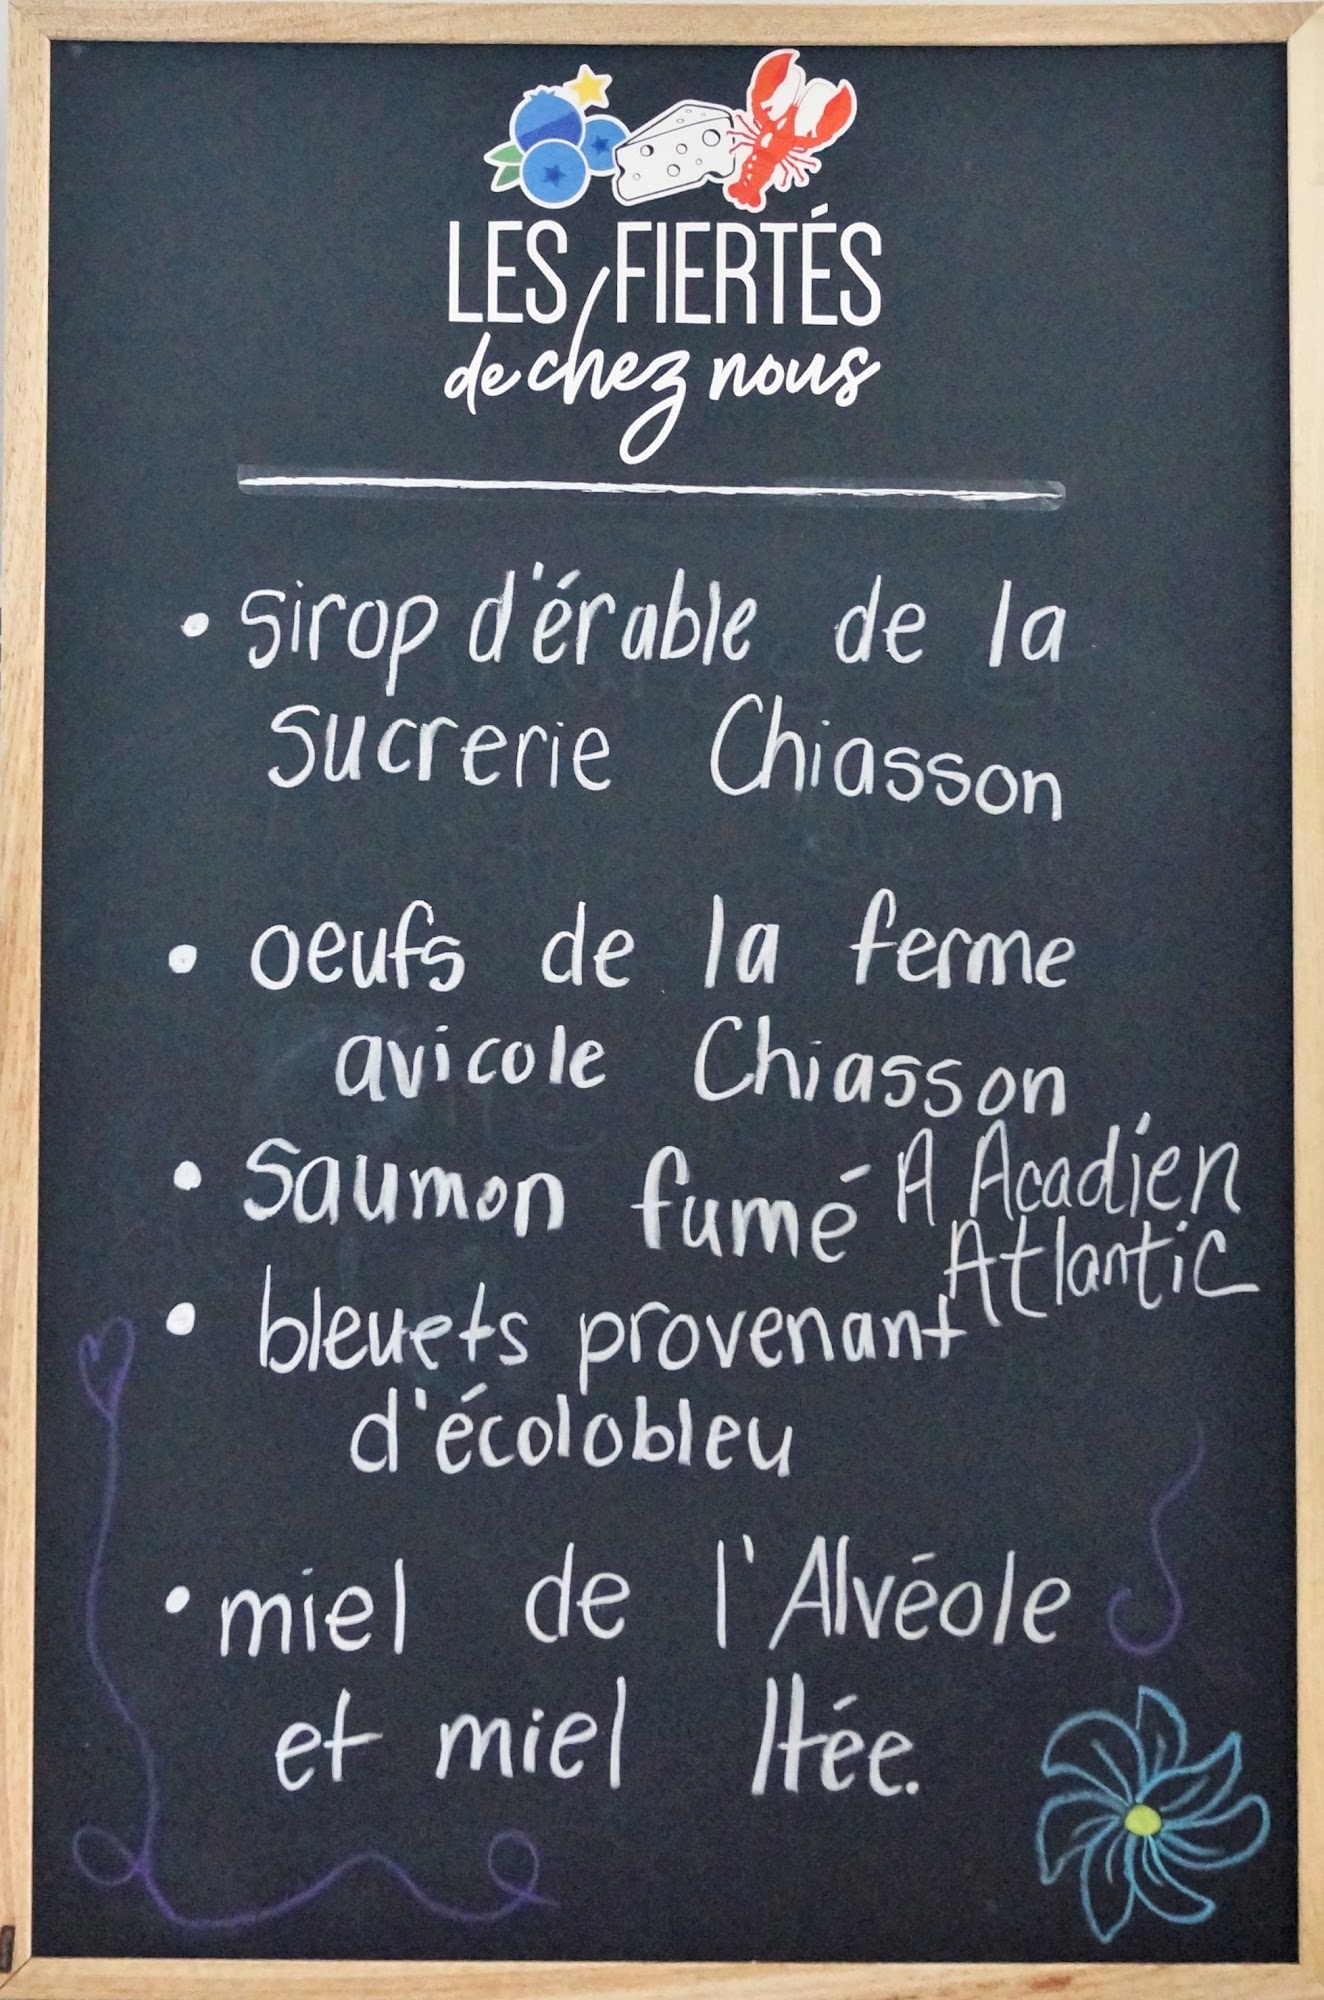 LES FIERTÉS
de chez nous
• sirop d'érable de la
sucrerie Chiasson
• oeufs de la ferme
avicole Chiasson
• saumon fumé A Acadien
Atlantic
• bleuets provenant
d'écolobleu
• miel de l'Alvéole
et miel ltée.